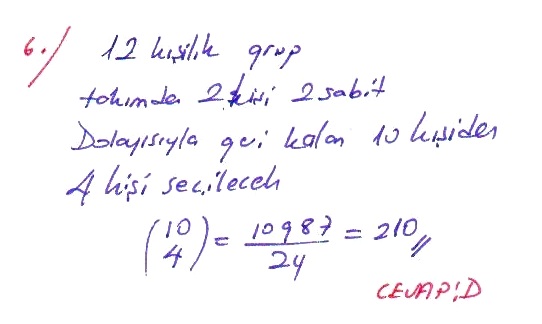 6.) 12 kişilik grup
takımda 2 kişi 2 sabit
Dolayısıyla geri kalan 10 kişiden
4 kişi seçilecek
(10 4) = 10 9 8 7 / 24 = 210 //
CEVAP: D